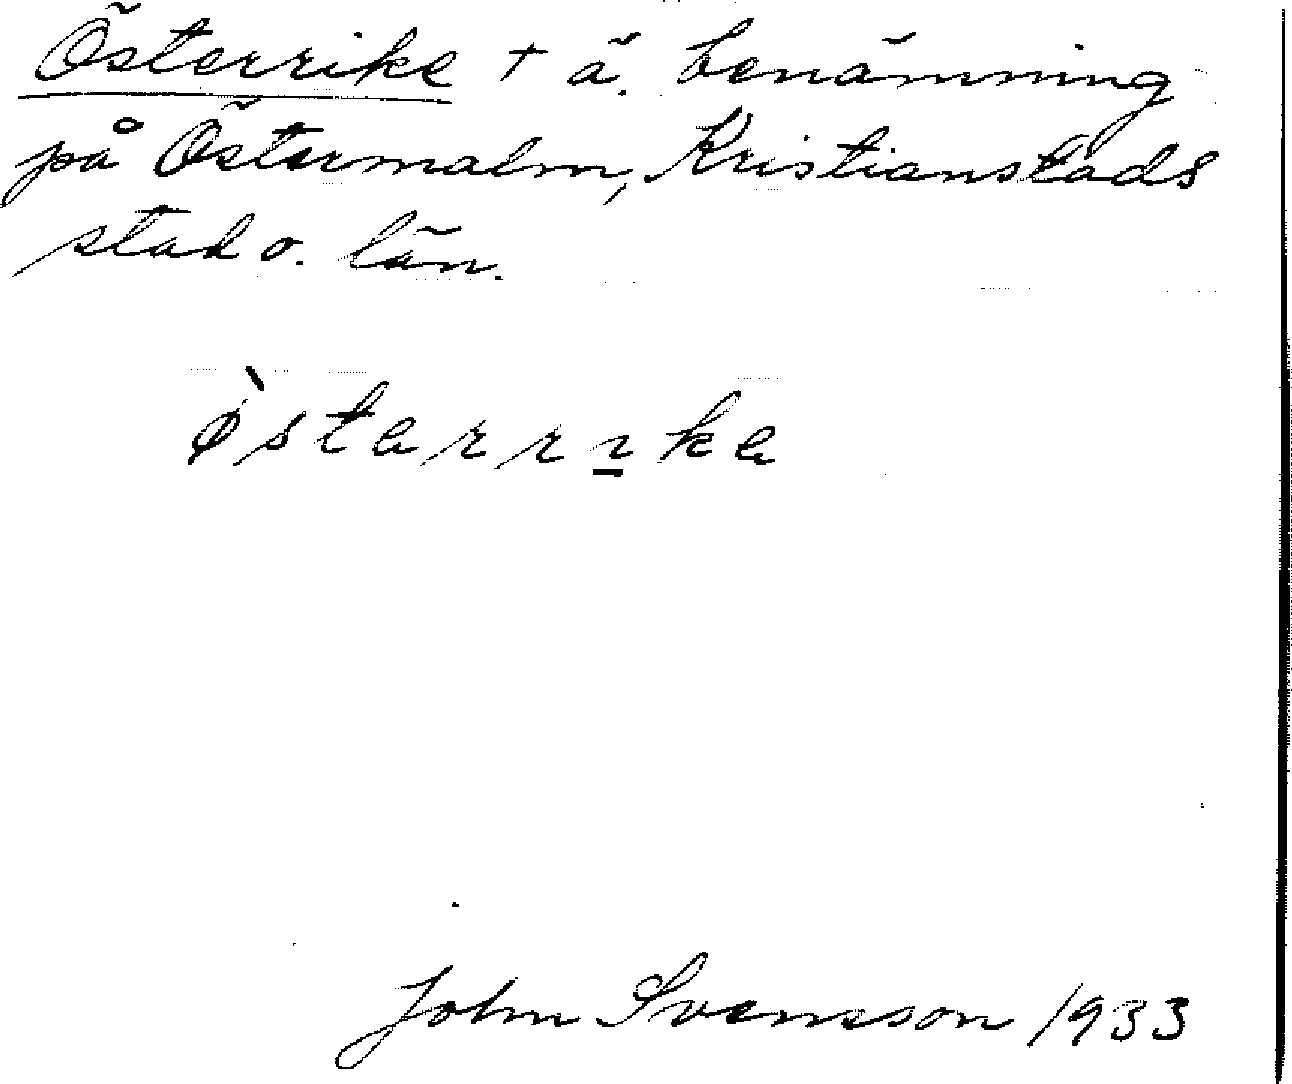 Österrike + ä. benämning
på Östermalm, Kristianstads
stad o. län.
ø̀starrıka
John Svensson 1933